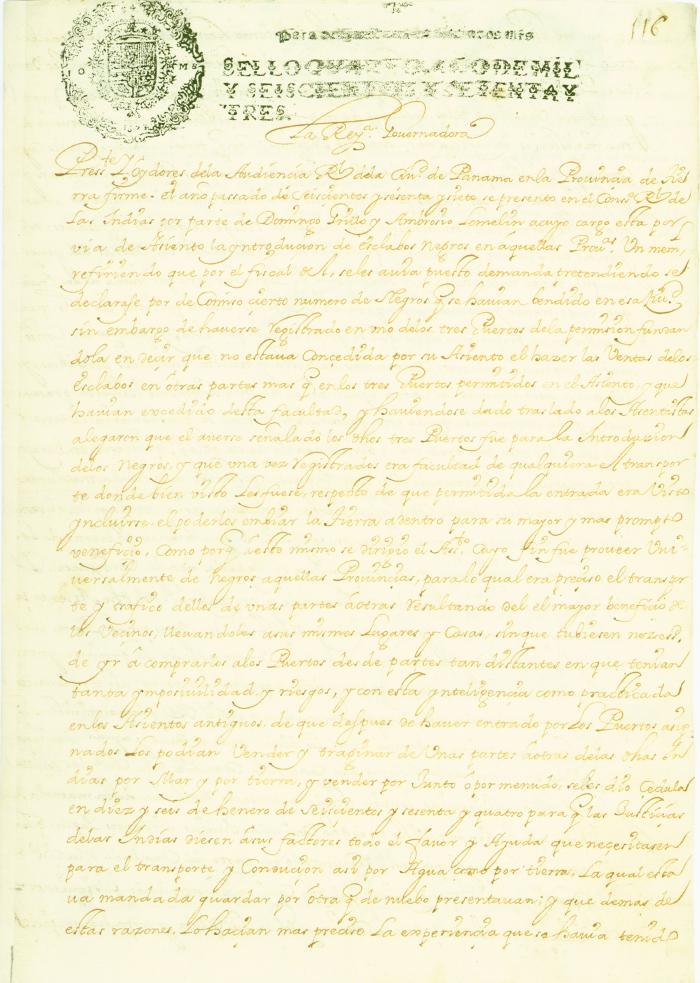 116
SELLO QVARTO, AÑO DE MIL
Y SEISCIENTOS Y SETENTA Y
TRES.
La Reyª. Governadora
Pressᵗᵉ. y Oydores dela Audiencia Rˡ. dela Ciuᵈ. de Panama en la Provinçia de tie
rra firme. el año passado de seiscientos y sesenta y siete se presento en el Consº Rˡ. de
las Indias por parte de Domingo Grillo y Ambrosio Lomelin a cuyo cargo esta por
via de Asiento la yntroduçion de esclabos negros en aquellas Prouᵃˢ. Un mem,
refiriendo que por el fiscal de l, se les auia puesto demanda pretendiendo se
declarase por de Comiso çierto numero de Negros q̃ se hauian bendido en esa Ciuᵈ.
sin embargo de haverse Registrado en vno delos tres Puertos dela permision fundan
dola en deçir que no estava Conçedida por su Asiento el hazer las Ventas delos
esclabos en otras partes mas q̃ en los tres Puertos permitidos en el Asiento, y que
hauian exçedido desta facultad, y hauiendose dado traslado alos Asentistas
alegaron que el averse señalado los dhos tres Puertos fue para la Introduzion
delos Negros, y que una vez Registrados era facultad de qualquiera el transpor
te donde bien visto les fuese, respecto de que permitida la entrada era Visto
yncluirse el poderlos embiar la tierra adentro para su mayor y mas prompto
veneficio, Como porq̃ a esto mismo se dirigio el Asᵗᵒ. Cuyo fin fue proveer Uni-
versalmente de negros aquellas Provinçias, para lo qual era preçiso el transpor
te y trafico dellos de unas partes a otras resultando del el mayor benefiçio de
los Veçinos, llevandoles a sus mismos Lugares y Casas, sin que tubiesen nezesᵈ.
de yr â comprarlos alos Puertos desde partes tan distantes en que tenian
tanta ymposiuilidad y riesgos, y con esta ynteligençia como practicada
en los Asientos antiguos de que despues de hauer entrado por los Puertos asig
nados los podian Vender y traginar de Unas partes a otras delas dhas In
dias por Mar y por tierra, y vender por Junto ô por menudo, se les dio Cedula
en diez y seis de henero de seisçientos y sesenta y quatro para q̃ las Justiçias
delas Indias diesen a sus factores todo el fauor y Ayuda que neçesitasen
para el transporte y Conduçion asi por Agua como por tierra, La qual esta
va mandada guardar por otra q̃ de nuebo presentavan: y que demas de
estas razones, Lo haçian mas preçiso La experiençia que se hauia tenido